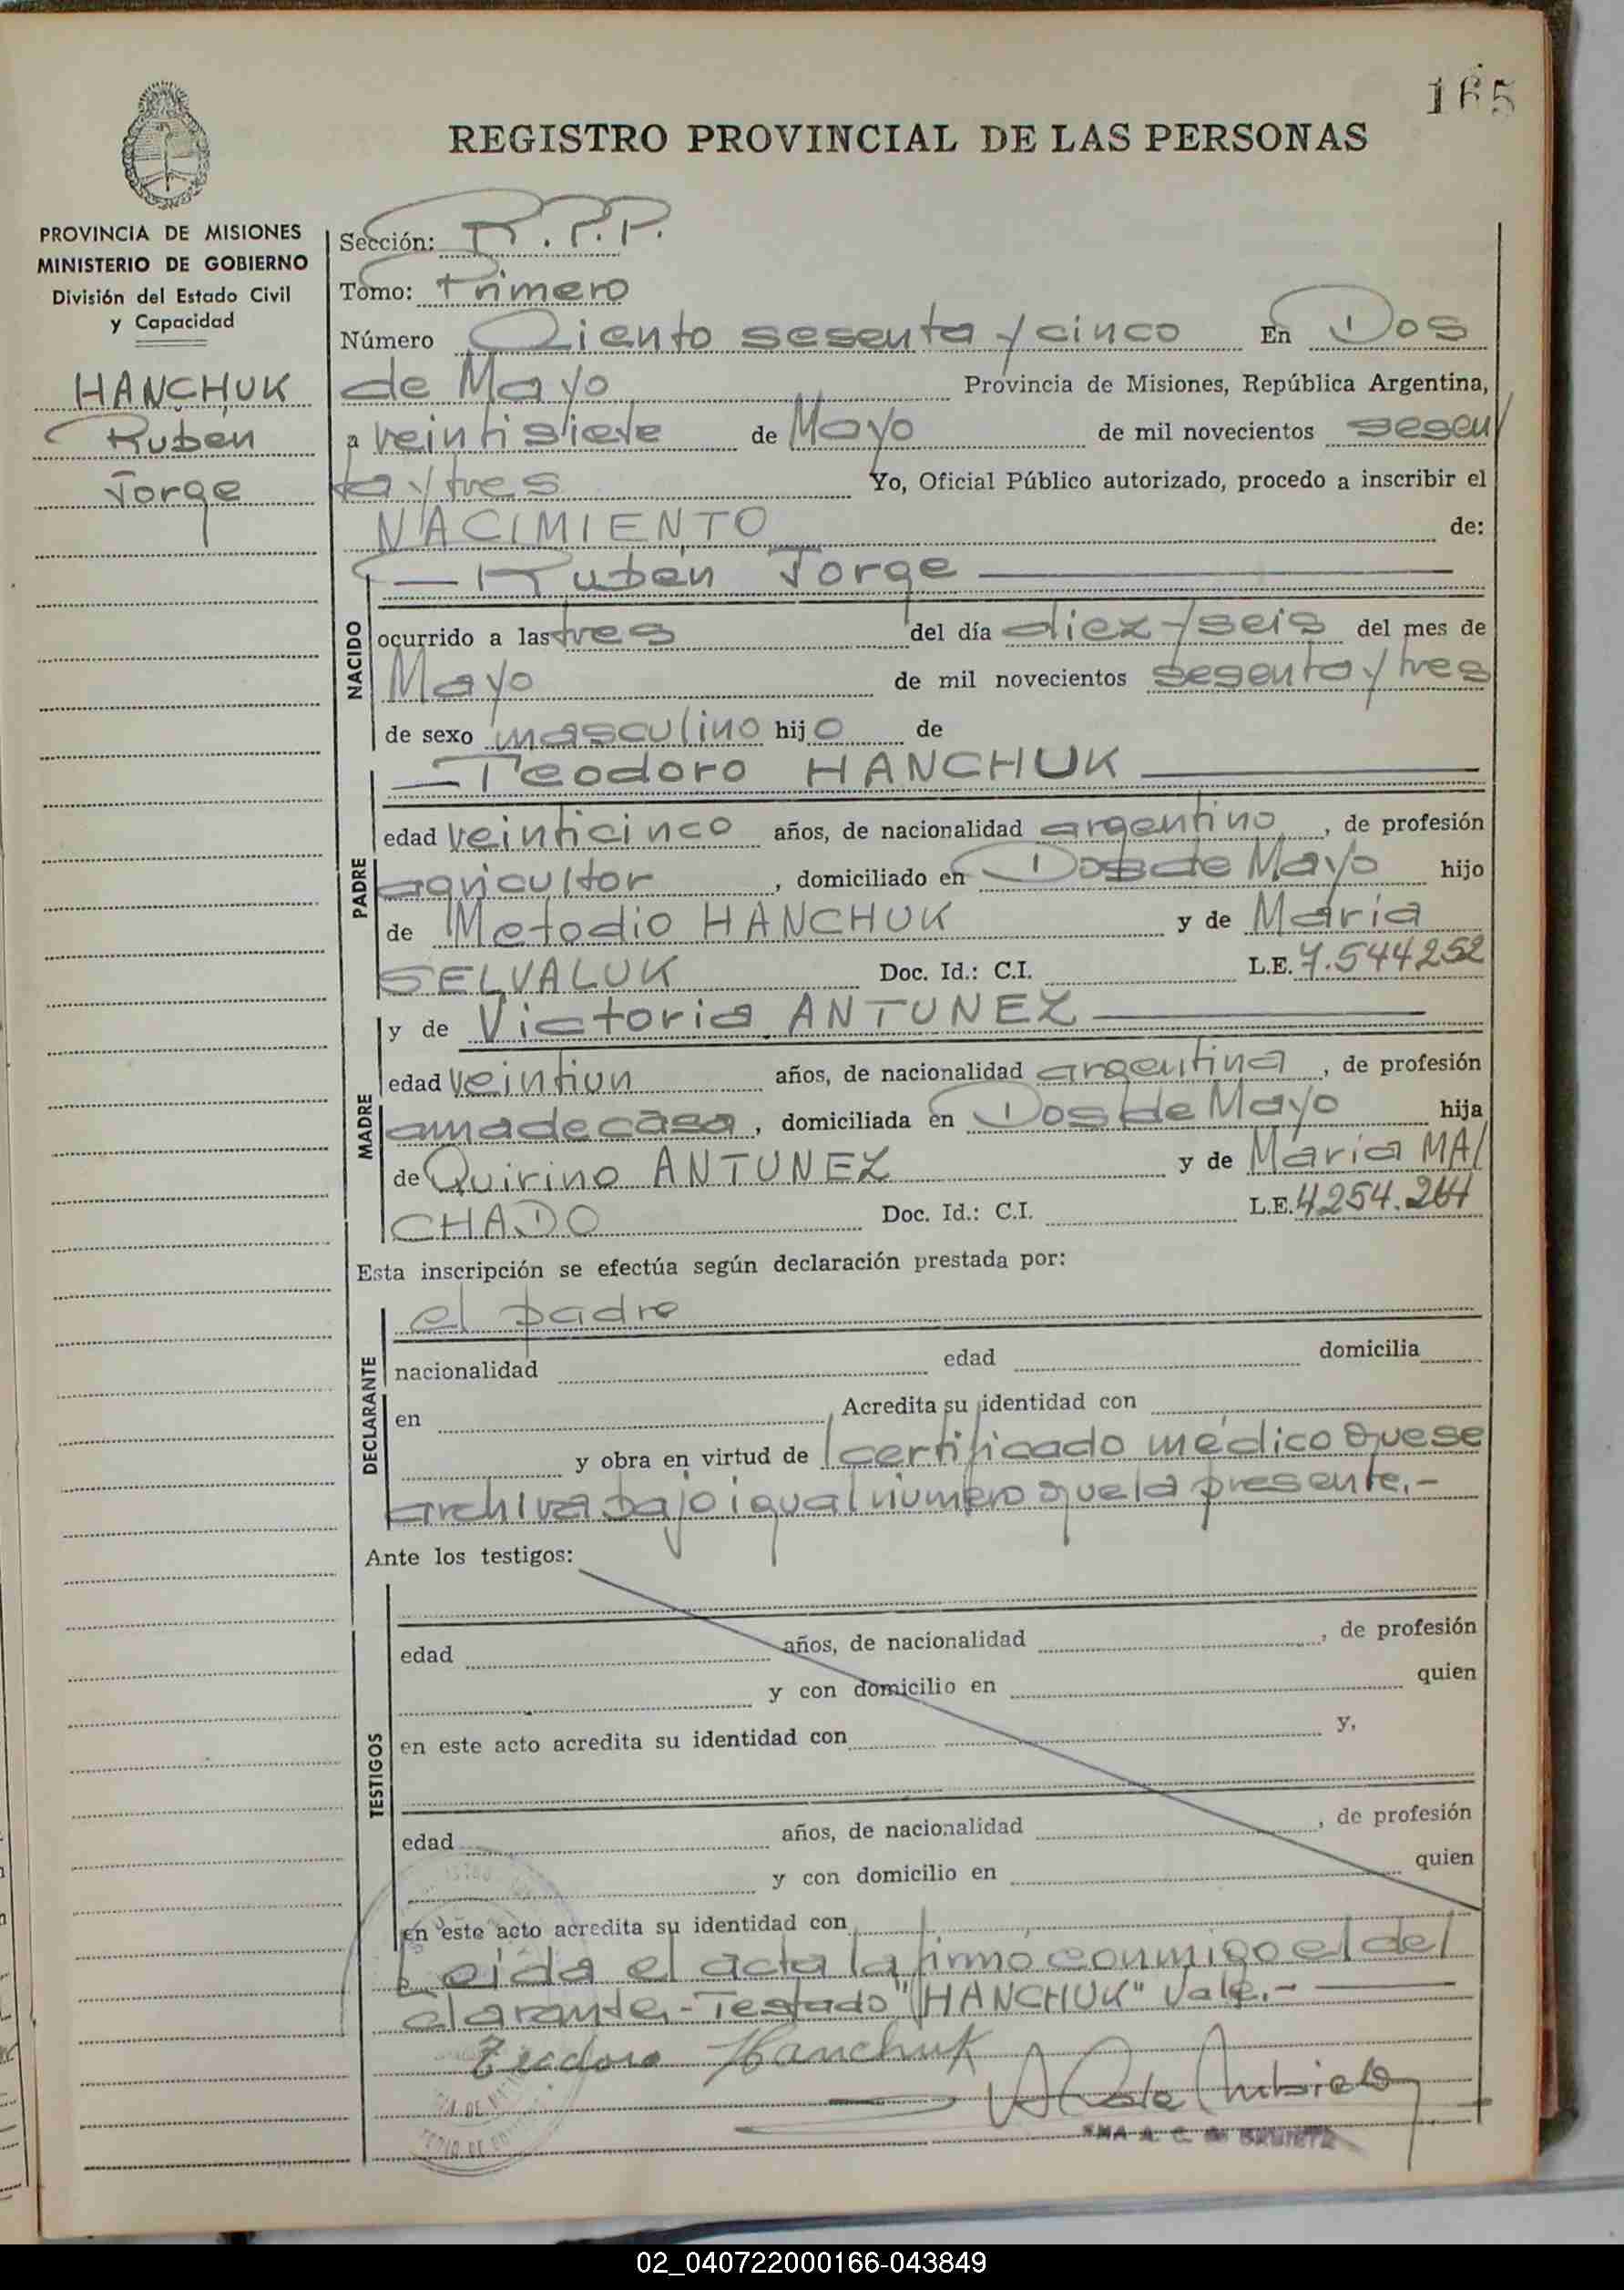 165
REGISTRO PROVINCIAL DE LAS PERSONAS
PROVINCIA DE MISIONES
MINISTERIO DE GOBIERNO
División del Estado Civil
y Capacidad
HANCHUK
Ruben
Jorge
Sección: R.P.P.
Tomo: Primero
Número Ciento sesenta y cinco En Dos
de Mayo Provincia de Misiones, República Argentina,
a veintisiete de Mayo de mil novecientos sesen/
ta y tres Yo, Oficial Público autorizado, procedo a inscribir el
NACIMIENTO de:
NACIDO
— Ruben Jorge —
ocurrido a las tres del día diez y seis del mes de
Mayo de mil novecientos sesenta y tres
de sexo masculino hijo de
PADRE
— Teodoro HANCHUK —
edad veinticinco años, de nacionalidad argentino, de profesión
agricultor, domiciliado en Dos de Mayo hijo
de Metodio HANCHUK y de Maria
SELVALUK Doc. Id.: C.I. L.E. 7.544252
MADRE
y de Victoria ANTUNEZ —
edad veintiun años, de nacionalidad argentina, de profesión
ama de casa, domiciliada en Dos de Mayo hija
de Quirino ANTUNEZ y de Maria MA/
CHADO Doc. Id.: C.I. L.E. 4.254.264
Esta inscripción se efectúa según declaración prestada por:
DECLARANTE
el padre
nacionalidad edad domicilia
en Acredita su identidad con
y obra en virtud de certificado médico que se
archiva bajo igual número que la presente.-
Ante los testigos:
TESTIGOS
edad años, de nacionalidad , de profesión
y con domicilio en quien
en este acto acredita su identidad con y,
edad años, de nacionalidad , de profesión
y con domicilio en quien
en este acto acredita su identidad con
Leida el acta la firmo conmigo el de/
clarante.- Testado "HANCHUK" Vale.- —
Teodoro Hanchuk
02_040722000166-043849